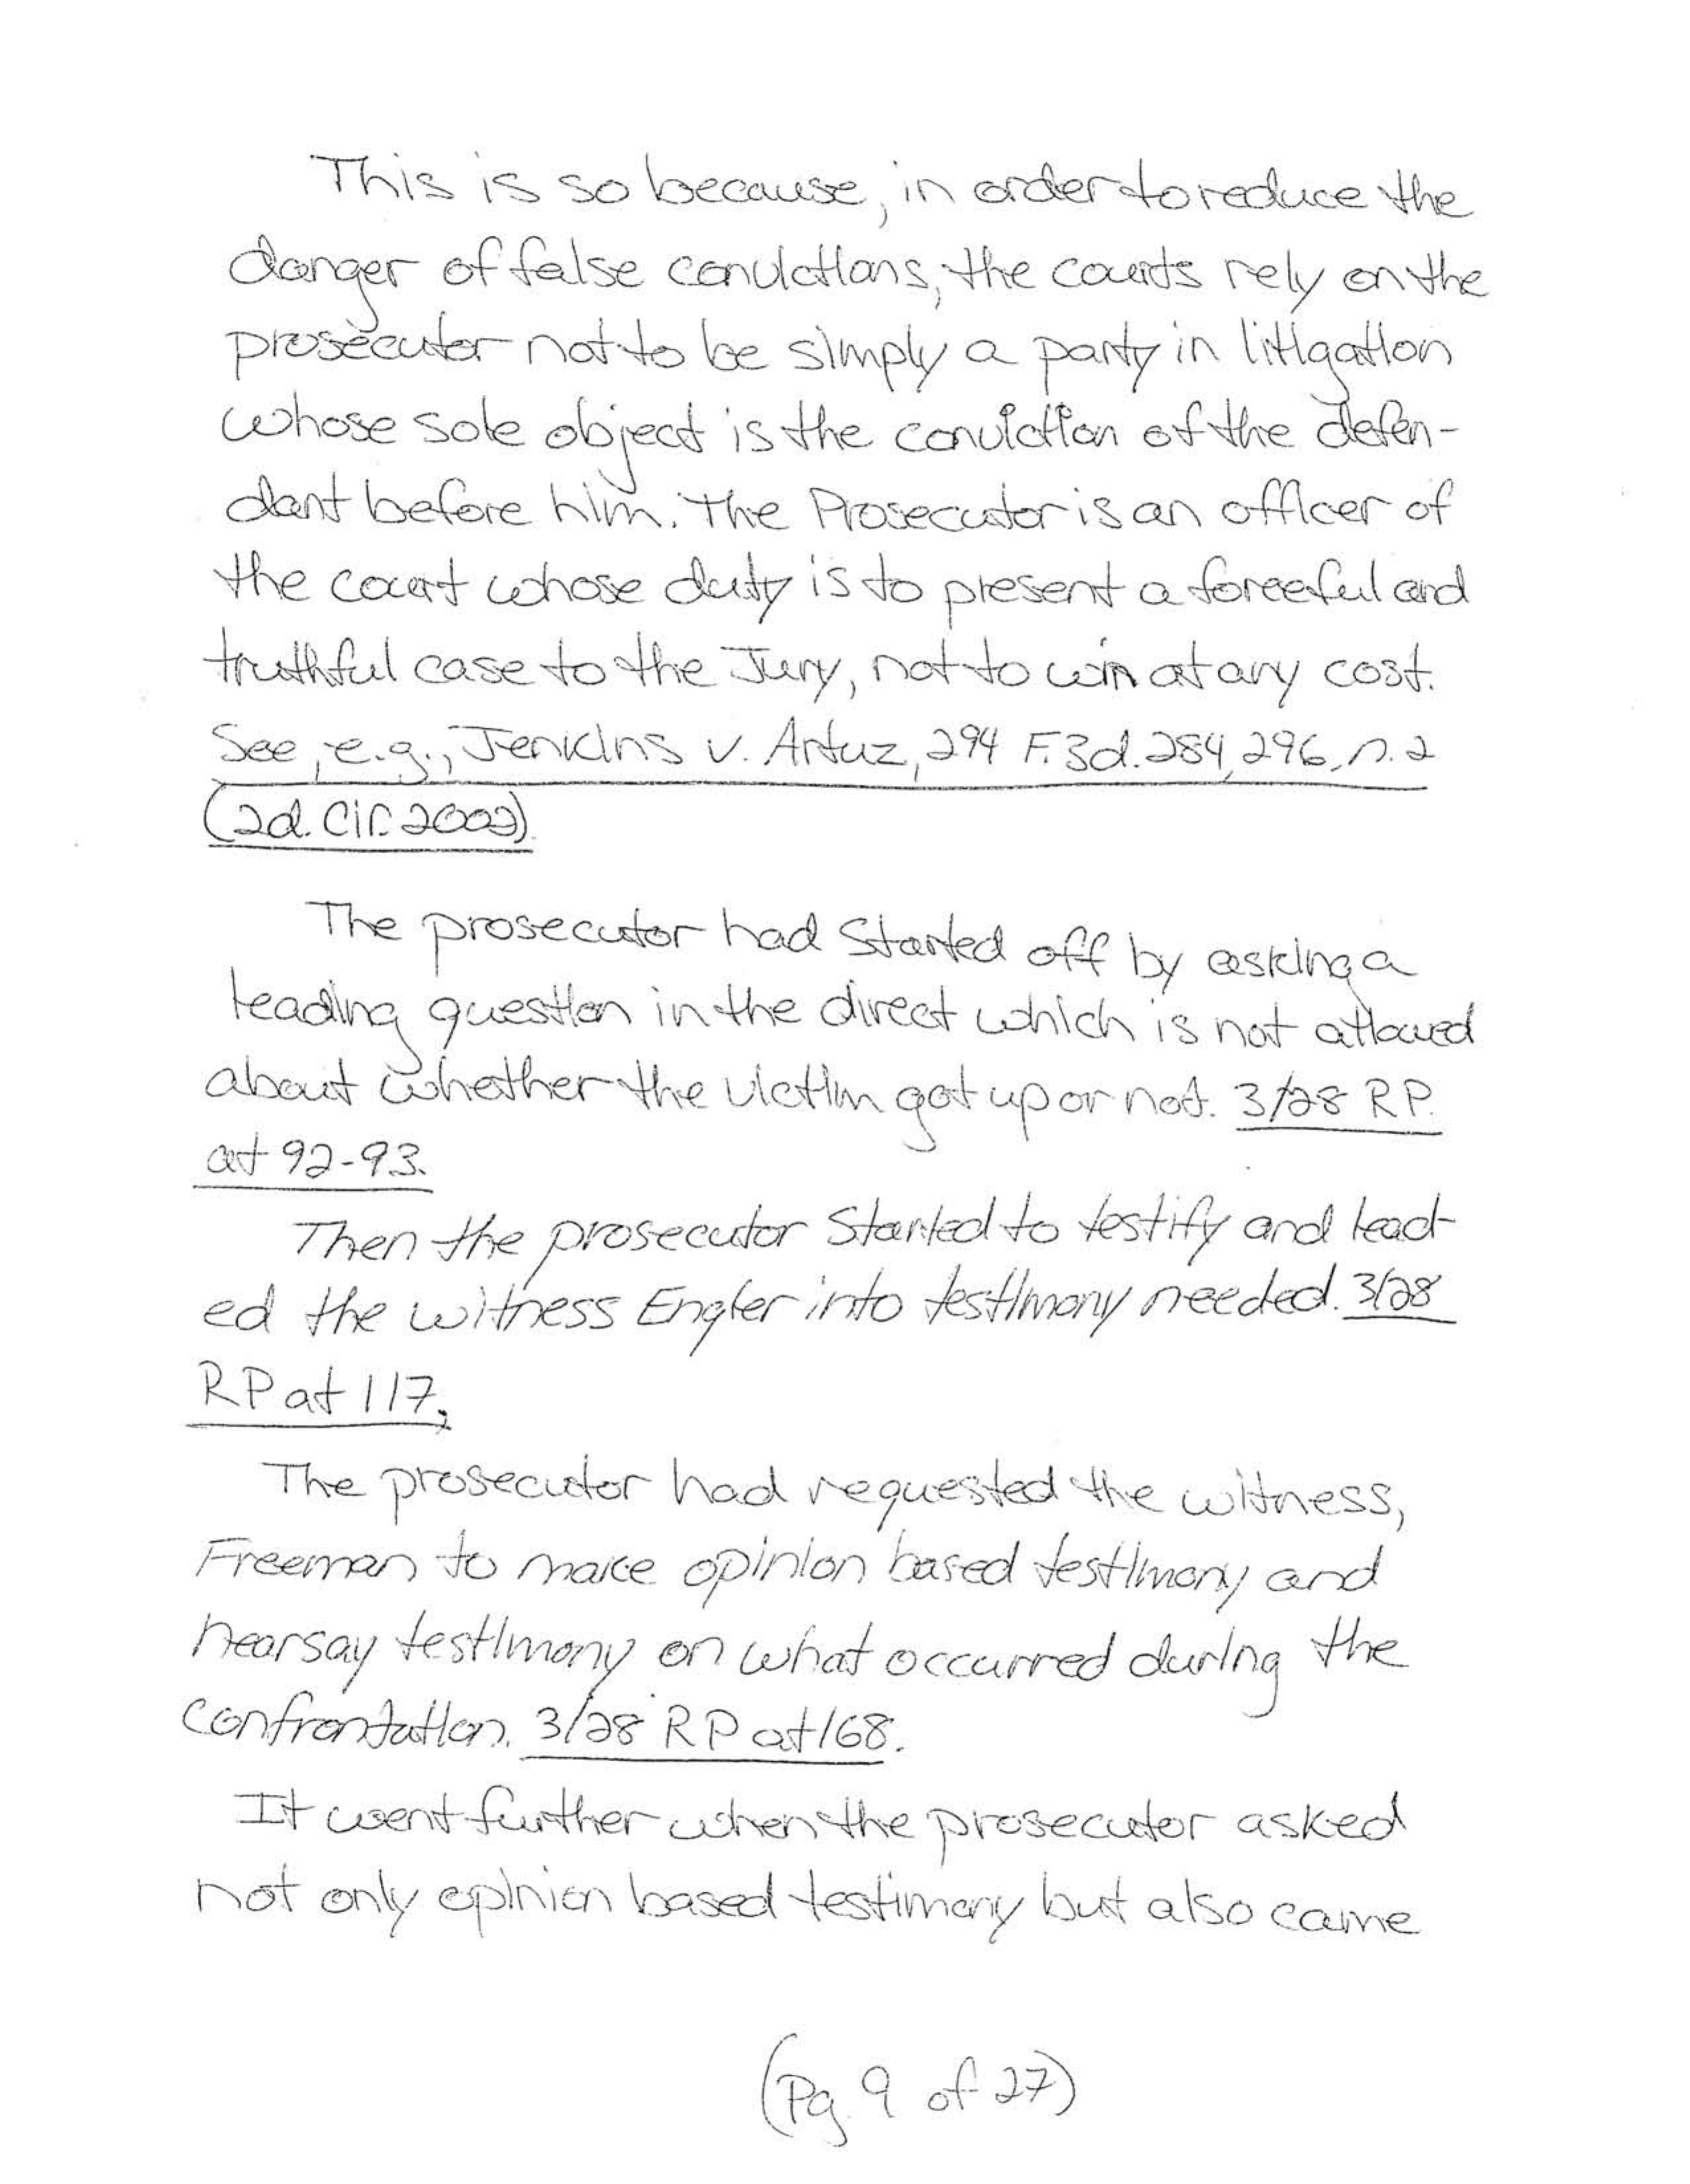 This is so because, in order to reduce the
danger of false convictions, the courts rely on the
prosecutor not to be simply a party in litigation
whose sole object is the conviction of the defen-
dant before him. The Prosecutor is an officer of
the court whose duty is to present a forceful and
truthful case to the Jury, not to win at any cost.
See, e.g., Jenkins v. Artuz, 294 F.3d. 284, 296, n.2
(2d. Cir. 2002).
The prosecutor had started off by asking a
leading question in the direct which is not allowed
about whether the victim got up or not. 3/28 RP.
at 92-93.
Then the prosecutor started to testify and lead-
ed the witness Engler into testimony needed. 3/28
RP at 117;
The prosecutor had requested the witness,
Freeman to make opinion based testimony and
hearsay testimony on what occurred during the
confrontation. 3/28 RP at 168.
It went further when the prosecutor asked
not only opinion based testimony but also came
(Pg. 9 of 27)